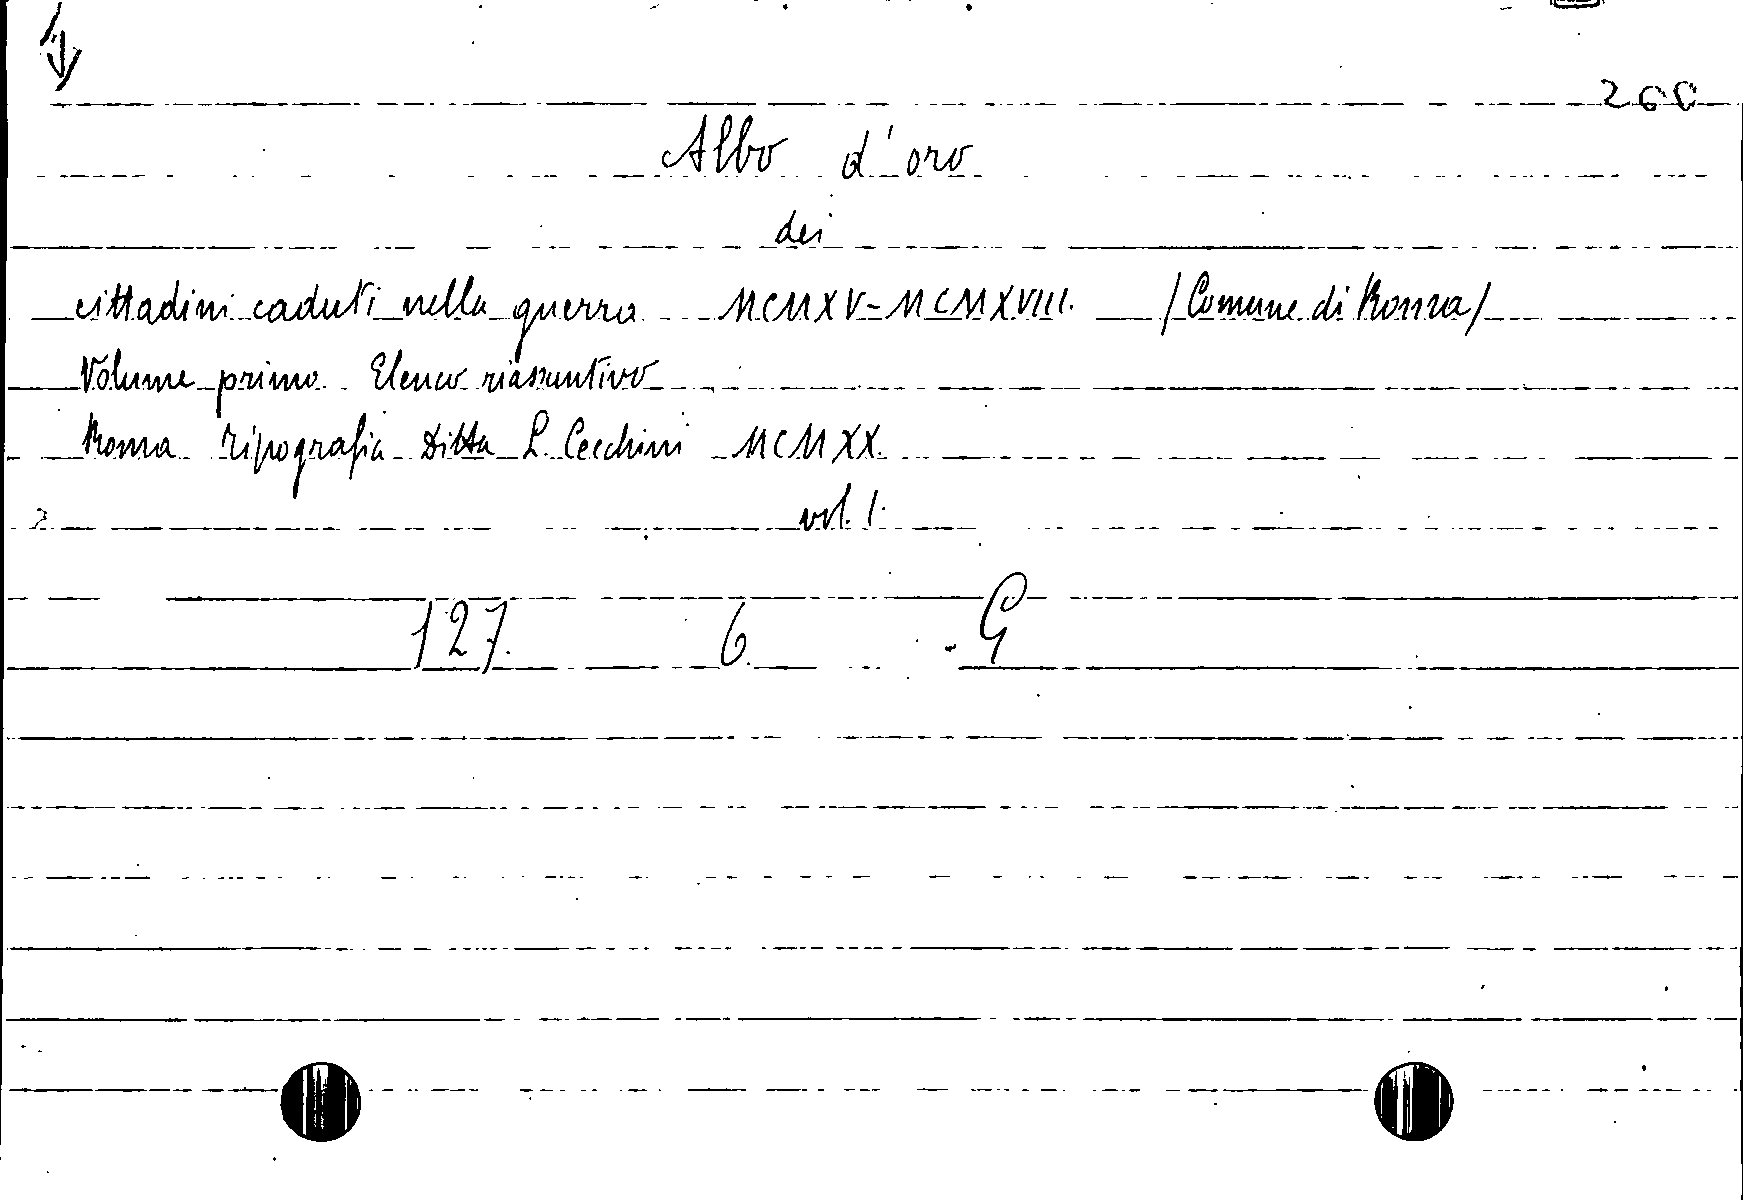 260
Albo d'oro
dei
cittadini caduti nella guerra MCMXV-MCMXVIII. /Comune di Roma/
Volume primo Elenco riassuntivo
Roma Tipografia Ditta L. Cecchini MCMXX.
vol. 1.
127. 6. G